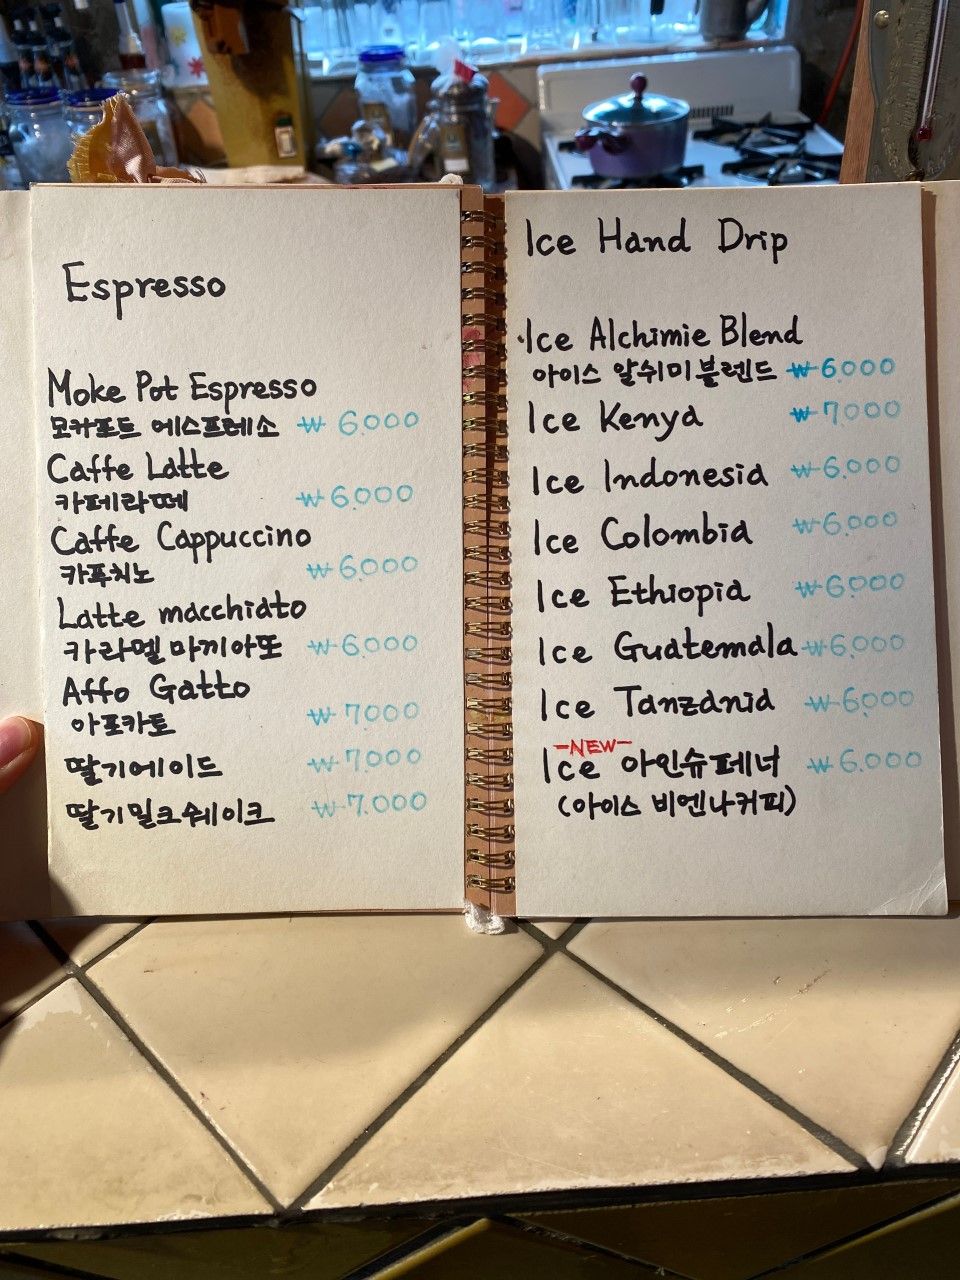 Espresso
Moke Pot Espresso
모카포트 에스프레소 ₩ 6.000
Caffe Latte
카페라떼 ₩ 6.000
Caffe Cappuccino
카푸치노 ₩ 6.000
Latte macchiato
카라멜 마끼아또 ₩ 6.000
Affo Gatto
아포카토 ₩ 7.000
딸기에이드 ₩ 7.000
딸기밀크쉐이크 ₩ 7.000
Ice Hand Drip
Ice Alchimie Blend
아이스 알쉬미블렌드 ₩ 6.000
Ice Kenya ₩ 7.000
Ice Indonesia ₩ 6.000
Ice Colombia ₩ 6.000
Ice Ethiopia ₩ 6.000
Ice Guatemala ₩ 6.000
Ice Tanzania ₩ 6.000
-NEW-
Ice 아인슈페너 ₩ 6.000
(아이스 비엔나커피)